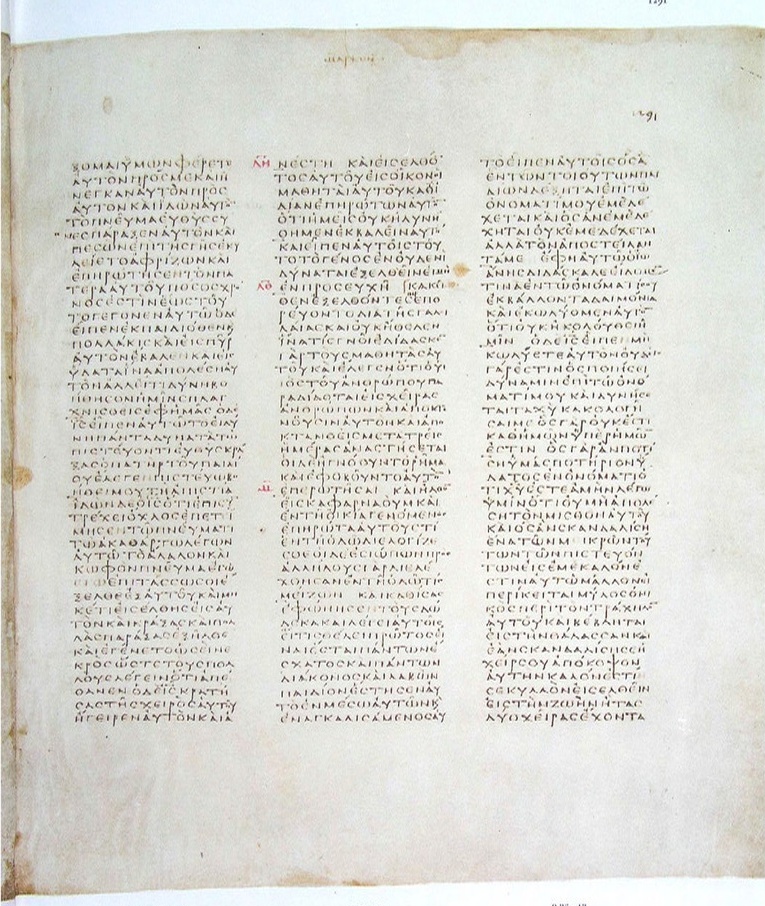 ΜΑΡΚΟΝ
1291
ΞΟΜΑΙΥΜΩΝΦΕΡΕΤΕ
ΑΥΤΟΝΠΡΟΣΜΕΚΑΙΗ
ΝΕΓΚΑΝΑΥΤΟΝΠΡΟΣ
ΑΥΤΟΝΚΑΙΙΔΩΝΑΥΤΟ
ΤΟΠΝΕΥΜΑΕΥΘΥΣΣΥ
ΝΕΣΠΑΡΑΞΕΝΑΥΤΟΝΚΑΙ
ΠΕΣΩΝΕΠΙΤΗΣΓΗΣΕΚΥ
ΛΕΙΕΤΟΑΦΡΙΖΩΝΚΑΙ
ΕΠΗΡΩΤΗΣΕΝΤΟΝΠΑ
ΤΕΡΑΑΥΤΟΥΠΟΣΟΣΧΡΟ
ΝΟΣΕΣΤΙΝΕΩΣΤΟΥ
ΤΟΓΕΓΟΝΕΝΑΥΤΩΟΔΕ
ΕΙΠΕΝΕΚΠΑΙΔΙΟΘΕΝΚ
ΠΟΛΛΑΚΙΣΚΑΙΕΙΣΠΥΡ
ΑΥΤΟΝΕΒΑΛΕΝΚΑΙΕΙΣ
ΥΔΑΤΑΙΝΑΑΠΟΛΕΣΗΑΥ
ΤΟΝΑΛΛΕΙΤΙΔΥΝΗΒΟ
ΗΘΗΣΟΝΗΜΙΝΣΠΛΑΓ
ΧΝΙΣΘΕΙΣΕΦΗΜΑΣΟΔΕ
ΙΣΕΙΠΕΝΑΥΤΩΤΟΕΙΔΥ
ΝΗΠΑΝΤΑΔΥΝΑΤΑΤΩ
ΠΙΣΤΕΥΟΝΤΙΕΥΘΥΣΚΡΑ
ΞΑΣΟΠΑΤΗΡΤΟΥΠΑΙΔΙ
ΟΥΕΛΕΓΕΝΠΙΣΤΕΥΩΒΟ
ΗΘΕΙΜΟΥΤΗΑΠΙΣΤΙΑ
ΙΔΩΝΔΕΟΙΣΟΤΙΕΠΙΣΥ
ΤΡΕΧΕΙΟΧΛΟΣΕΠΕΤΙ
ΜΗΣΕΝΤΩΠΝΕΥΜΑΤΙ
ΤΩΑΚΑΘΑΡΤΩΛΕΓΩΝ
ΑΥΤΩΤΟΑΛΑΛΟΝΚΑΙ
ΚΩΦΟΝΠΝΕΥΜΑΕΓΩ
ΕΠΙΤΑΣΣΩΣΟΙΕ
ΞΕΛΘΕΕΞΑΥΤΟΥΚΑΙΜΗ
ΚΕΤΙΕΙΣΕΛΘΗΣΕΙΣΑΥ
ΤΟΝΚΑΙΚΡΑΞΑΣΚΑΙΠΟΛ
ΛΑΣΠΑΡΑΞΑΣΕΞΗΛΘΕ
ΚΑΙΕΓΕΝΕΤΟΩΣΕΙΝΕ
ΚΡΟΣΩΣΤΕΤΟΥΣΠΟΛ
ΛΟΥΣΛΕΓΕΙΝΟΤΙΑΠΕ
ΘΑΝΕΝΟΔΕΙΣΚΡΑΤΗ
ΣΑΣΤΗΣΧΕΙΡΟΣΑΥΤΟΥ
ΗΓΕΙΡΕΝΑΥΤΟΝΚΑΙΑ
ΛΗ ΝΕΣΤΗ ΚΑΙΕΙΣΕΛΘΟ
ΤΟΣΑΥΤΟΥΕΙΣΟΙΚΟΝΟΙ
ΜΑΘΗΤΑΙΑΥΤΟΥΚΑΤΙ
ΔΙΑΝΕΠΗΡΩΤΩΝΑΥΤΟ
ΟΤΙΗΜΕΙΣΟΥΚΗΔΥΝΗ
ΘΗΜΕΝΕΚΒΑΛΕΙΝΑΥΤΟ
ΚΑΙΕΙΠΕΝΑΥΤΟΙΣΤΟΥ
ΤΟΤΟΓΕΝΟΣΕΝΟΥΔΕΝΙ
ΔΥΝΑΤΑΙΕΞΕΛΘΕΙΝΕΙΜΗ
ΛΘ ΕΝΠΡΟΣΕΥΧΗ ΚΑΚΕΙ
ΘΕΝΕΞΕΛΘΟΝΤΕΣΕΠΟ
ΡΕΥΟΝΤΟΔΙΑΤΗΣΓΑΛΙ
ΛΑΙΑΣΚΑΙΟΥΚΗΘΕΛΕΝ
ΙΝΑΤΙΣΓΝΟΙΕΔΙΔΑΣΚΕ
ΓΑΡΤΟΥΣΜΑΘΗΤΑΣΑΥ
ΤΟΥΚΑΙΕΛΕΓΕΝΟΤΙΟΥΙ
ΟΣΤΟΥΑΝΘΡΩΠΟΥΠΑ
ΡΑΔΙΔΟΤΑΙΕΙΣΧΕΙΡΑΣ
ΑΝΘΡΩΠΩΝΚΑΙΑΠΟΚΤΕ
ΝΟΥΣΙΝΑΥΤΟΝΚΑΙΑΠΟ
ΚΤΑΝΘΕΙΣΜΕΤΑΤΡΕΙΣ
ΗΜΕΡΑΣΑΝΑΣΤΗΣΕΤΑΙ
ΟΙΔΕΗΓΝΟΟΥΝΤΟΡΗΜΑ
ΚΑΙΕΦΟΒΟΥΝΤΟΑΥΤΟ
Μ ΕΠΕΡΩΤΗΣΑΙ ΚΑΙΗΛΘΟ
ΕΙΣΚΑΦΑΡΝΑΟΥΜΚΑΙ
ΕΝΤΗΟΙΚΙΑΓΕΝΟΜΕΝΟΣ
ΕΠΗΡΩΤΑΑΥΤΟΥΣΤΙ
ΕΝΤΗΟΔΩΔΙΕΛΟΓΙΖΕ
ΣΘΕΟΙΔΕΕΣΙΩΠΩΝΠΡΟΣ
ΑΛΛΗΛΟΥΣΓΑΡΔΙΕΛΕ
ΧΘΗΣΑΝΕΝΤΗΟΔΩΤΙΣ
ΜΕΙΖΩΝ ΚΑΙΚΑΘΙΣΑΣ
ΕΦΩΝΗΣΕΝΤΟΥΣΔΩ
ΔΕΚΑΚΑΙΛΕΓΕΙΑΥΤΟΙΣ
ΕΙΤΙΣΘΕΛΕΙΠΡΩΤΟΣΕΙ
ΝΑΙΕΣΤΑΙΠΑΝΤΩΝΕ
ΣΧΑΤΟΣΚΑΙΠΑΝΤΩΝ
ΔΙΑΚΟΝΟΣΚΑΙΛΑΒΩΝ
ΠΑΙΔΙΟΝΕΣΤΗΣΕΝΑΥ
ΤΟΕΝΜΕΣΩΑΥΤΩΝΚ
ΕΝΑΓΚΑΛΙΣΑΜΕΝΟΣΑΥ
ΤΟΕΙΠΕΝΑΥΤΟΙΣΟΣΑ
ΕΝΤΩΝΤΟΙΟΥΤΩΝΠΑΙ
ΔΙΩΝΔΕΞΗΤΑΙΕΠΙΤΩ
ΟΝΟΜΑΤΙΜΟΥΕΜΕΔΕ
ΧΕΤΑΙΚΑΙΟΣΑΝΕΜΕΔΕ
ΧΗΤΑΙΟΥΚΕΜΕΔΕΧΕΤΑΙ
ΑΛΛΑΤΟΝΑΠΟΣΤΕΙΛΑΝ
ΤΑΜΕ ΕΦΗΑΥΤΩΟΙΩ
ΑΝΗΣΔΙΔΑΣΚΑΛΕΕΙΔΟΜΕ
ΤΙΝΑΕΝΤΩΟΝΟΜΑΤΙΣΟΥ
ΕΚΒΑΛΛΟΝΤΑΔΑΙΜΟΝΙΑ
ΚΑΙΕΚΩΛΥΟΜΕΝΑΥΤΟ
ΟΤΙΟΥΚΗΚΟΛΟΥΘΕΙΗ
ΜΙΝ ΟΔΕΙΣΕΙΠΕΝΜΗ
ΚΩΛΥΕΤΕΑΥΤΟΝΟΥΔΙΣ
ΓΑΡΕΣΤΙΝΟΣΠΟΙΗΣΕΙ
ΔΥΝΑΜΙΝΕΠΙΤΩΟΝΟ
ΜΑΤΙΜΟΥΚΑΙΔΥΝΗΣΕ
ΤΑΙΤΑΧΥΚΑΚΟΛΟΓΗ
ΣΑΙΜΕΟΣΓΑΡΟΥΚΕΣΤΙ
ΚΑΘΗΜΩΝΥΠΕΡΗΜΩ
ΕΣΤΙΝ ΟΣΓΑΡΑΝΠΟΤΙ
ΣΗΥΜΑΣΠΟΤΗΡΙΟΝΥ
ΔΑΤΟΣΕΝΟΝΟΜΑΤΙΟ
ΤΙΧΥΕΣΤΕΑΜΗΝΛΕΓΩ
ΥΜΙΝΟΤΙΟΥΜΗΑΠΟΛΕ
ΣΗΤΟΝΜΙΣΘΟΝΑΥΤΟΥ
ΚΑΙΟΣΑΝΣΚΑΝΔΑΛΙΣΗ
ΕΝΑΤΩΝΜΙΚΡΩΝΤΟΥ
ΤΩΝΤΩΝΠΙΣΤΕΥΟΝ
ΤΩΝΕΙΣΕΜΕΚΑΛΟΝΕ
ΣΤΙΝΑΥΤΩΜΑΛΛΟΝΕΙ
ΠΕΡΙΚΕΙΤΑΙΜΥΛΟΣΟΝΙ
ΚΟΣΠΕΡΙΤΟΝΤΡΑΧΗΛΟ
ΑΥΤΟΥΚΑΙΒΕΒΛΗΤΑΙ
ΕΙΣΤΗΝΘΑΛΑΣΣΑΝΚΑΙ
ΕΑΝΣΚΑΝΔΑΛΙΣΗΣΕΗ
ΧΕΙΡΣΟΥΑΠΟΚΟΨΟΝ
ΑΥΤΗΝΚΑΛΟΝΕΣΤΙ
ΣΕΚΥΛΛΟΝΕΙΣΕΛΘΕΙΝ
ΕΙΣΤΗΝΖΩΗΝΗΤΑΣ
ΔΥΟΧΕΙΡΑΣΕΧΟΝΤΑ